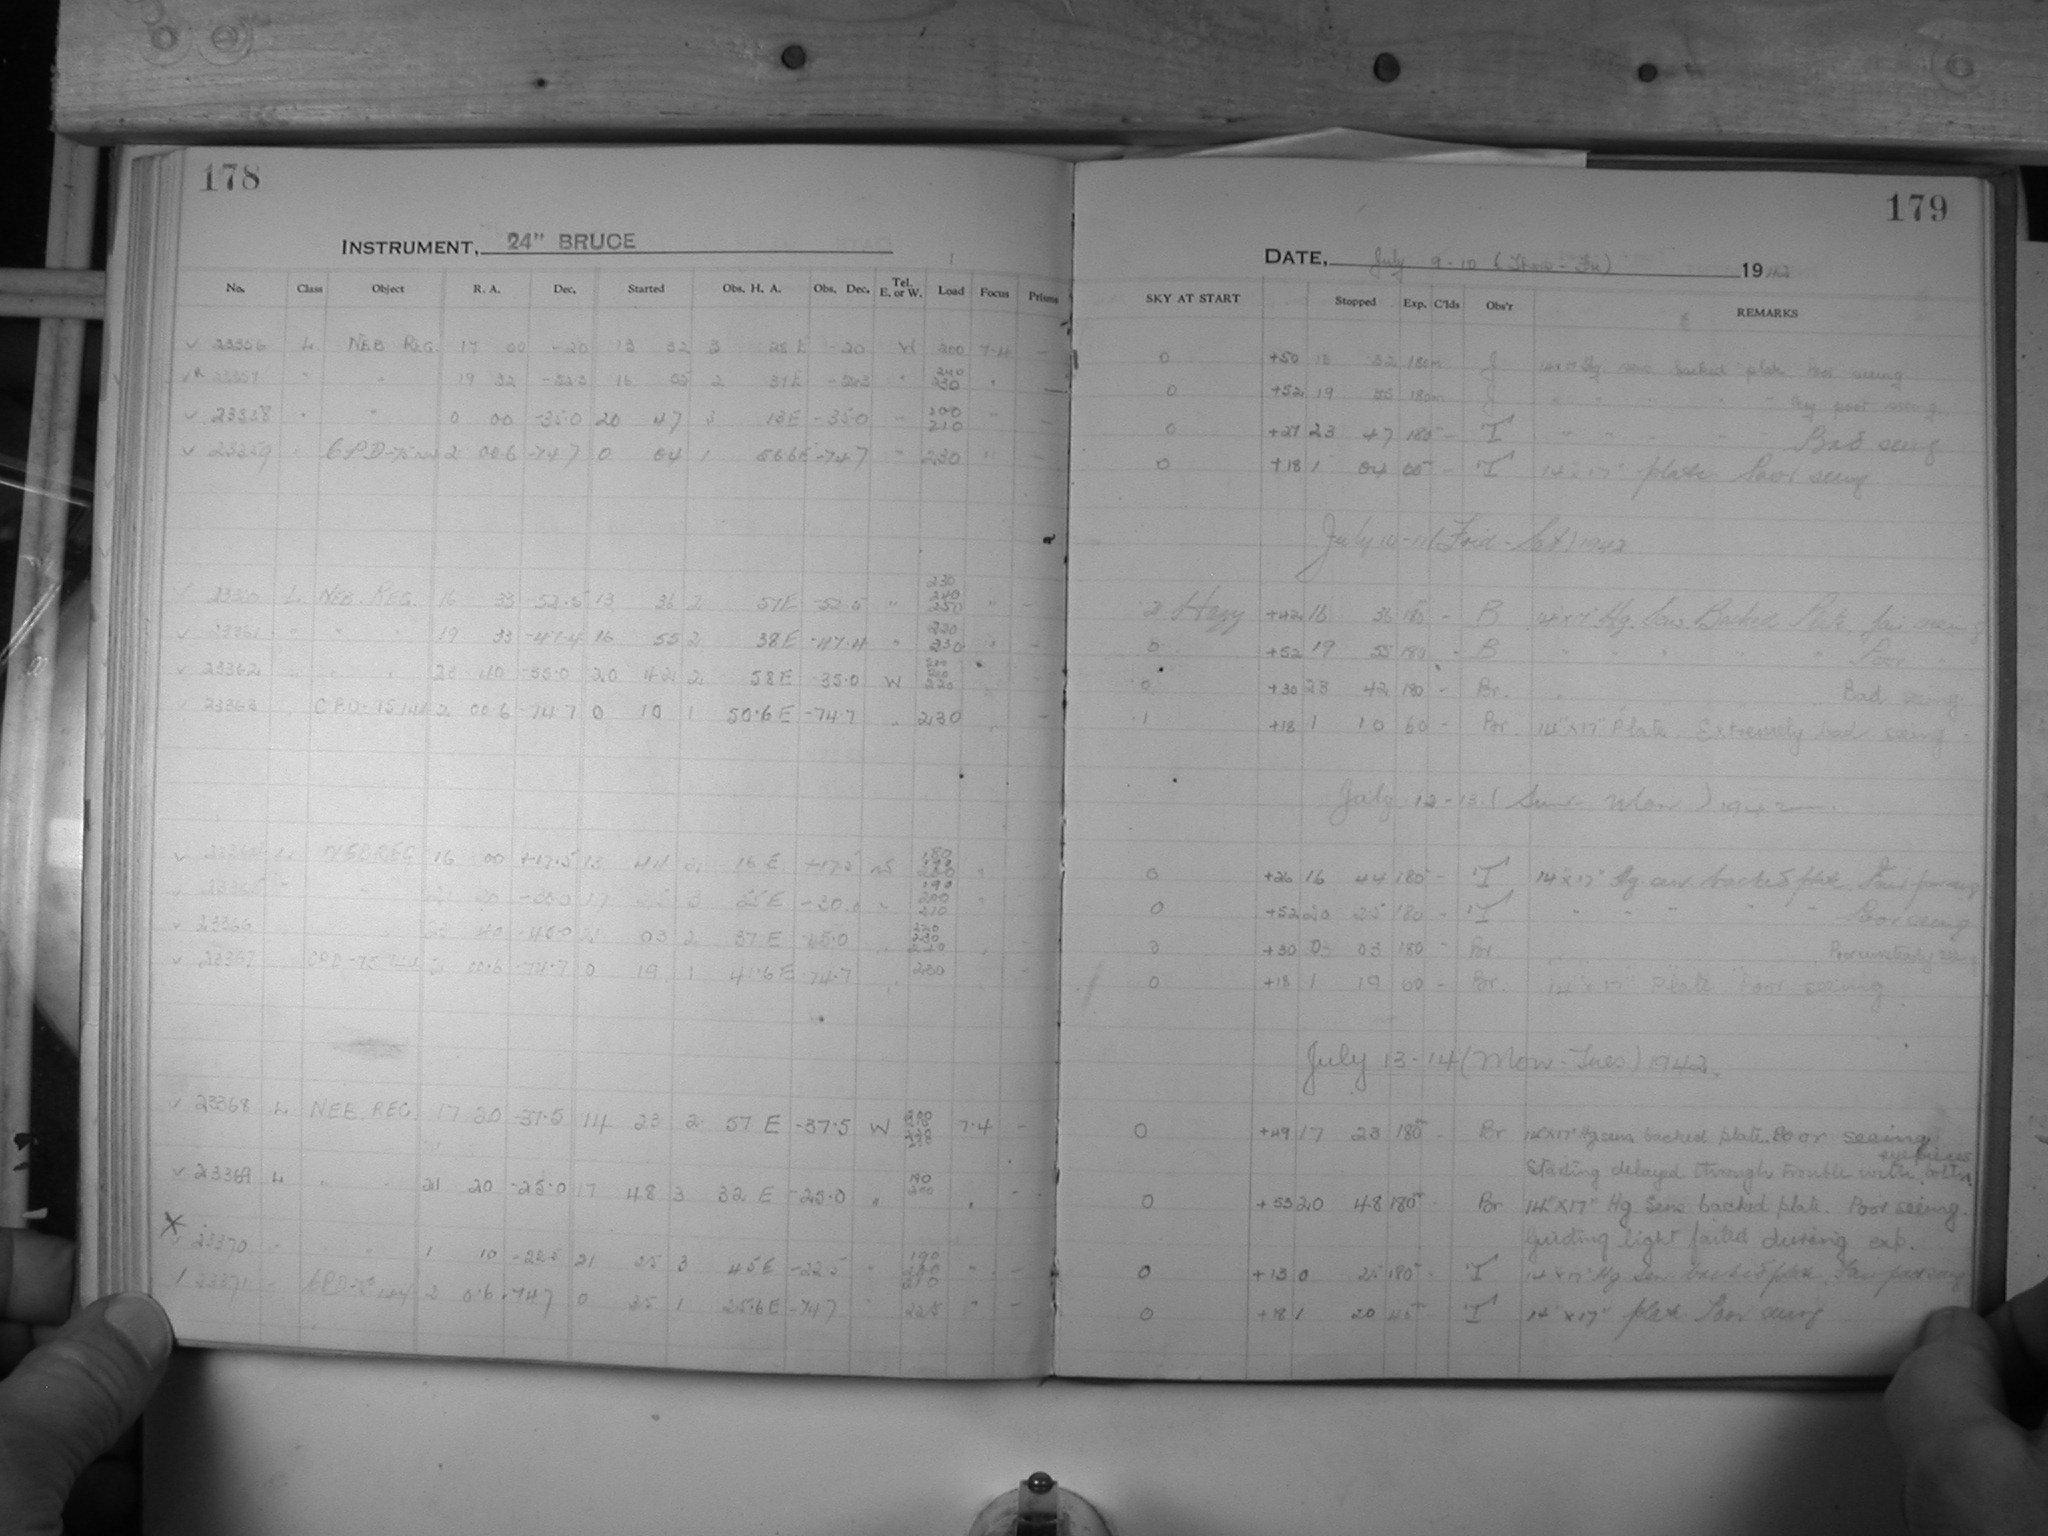 178
INSTRUMENT, 24" BRUCE
No. Class Object R. A. Dec. Started Obs. H. A. Obs. Dec. Tel. E. or W. Load Focus Prisms
23356 L NEB REG. 17 00 -20 13 32 3 28 E -20 W 200 7.4 -
23357 " " 19 32 16 55 2 37 E "
23358 " " 0 00 -35.0 20 47 3 13 E -35.0 " 200 210
23359 " CPD-75 2 00.6 -74.7 0 04 1 56.6E -74.7 " 230 "
23360 L NEB. REG. 16 33 -52.5 13 36 2 57 E -52.5 " 230 240 250 " -
23361 " " " 19 33 -47.4 16 55 2 38 E -47.4 " 220 230 " -
23362 " " " 23 40 -35.0 20 42 2 58 E -35.0 W
23363 " CPD-75 144 2 00.6 -74.7 0 10 1 50.6 E -74.7 " 230 " -
L NEB REG 16 00 +17.5 13 44 2 16 E +17.5
23365 " " 21 20 -30.0 17 25 3 35 E -30.0 " 190 200 210 "
23366 23 40 -45.0 21 03 2 37 E -45.0 " 220 230
23367 CPD-75 144 2 00.6 -74.7 0 19 1 41.6 E -74.7 " 230
23368 L NEB. REG. 17 30 -37.5 14 23 2 57 E -37.5 W 7.4 -
23369 L " " 21 20 -25.0 17 48 3 32 E -25.0 " 190 200 " -
X 23370 " " 1 10 -22.5 21 25 3 45 E -22.5 " 190 200 210 " -
23371 CPD-75 144 2 0.6 -74.7 0 35 1 25.6 E -74.7 " 225 " -
179
DATE, July 9-10 (Thur-Fri) 1942
SKY AT START Stopped Exp. C'lds Obs'r REMARKS
0 +50 16 32 180m J 14x17 Hg sens backed plate Poor seeing
0 +52 19 55 180m J " " " " " Very poor seeing.
0 +27 23 47 180 - T " " " " Bad seeing
0 +18 1 04 60 - T 14"x17" plate Poor seeing
July 10-11 (Frid-Sat) 1942
2 Hazy +42 16 36 180 - B 14"x17" Hg. Sens. Backed Plate. Fair seeing
0 +52 19 55 180 - B " " " " " Poor "
0 +30 23 42 180 - Br. " " " " Bad seeing
1 +18 1 10 60 - Br. 14"x17" Plate. Extremely bad seeing.
July 12-13 (Sun-Mon) 1942
0 +26 16 44 180 - T 14"x17" Hg sens backed plate
0 +52 20 25 180 - T " " " " " Poor seeing
0 +30 0 03 180 - Br
0 +18 1 19 60 - Br. 14"x17" Plate Poor seeing
July 13-14 (Mon-Tues) 1942.
0 +49 17 23 180 - Br 14"x17" Hg sens backed plate. Poor seeing.
Starting delayed through trouble with eyepieces
0 +53 20 48 180 Br 14"x17" Hg Sens backed plate. Poor seeing.
Guiding light failed during exp.
0 +13 0 25 180 - T 14"x17" Hg Sens backed plate
0 +18 1 20 45 - T 14"x17" plate Poor seeing